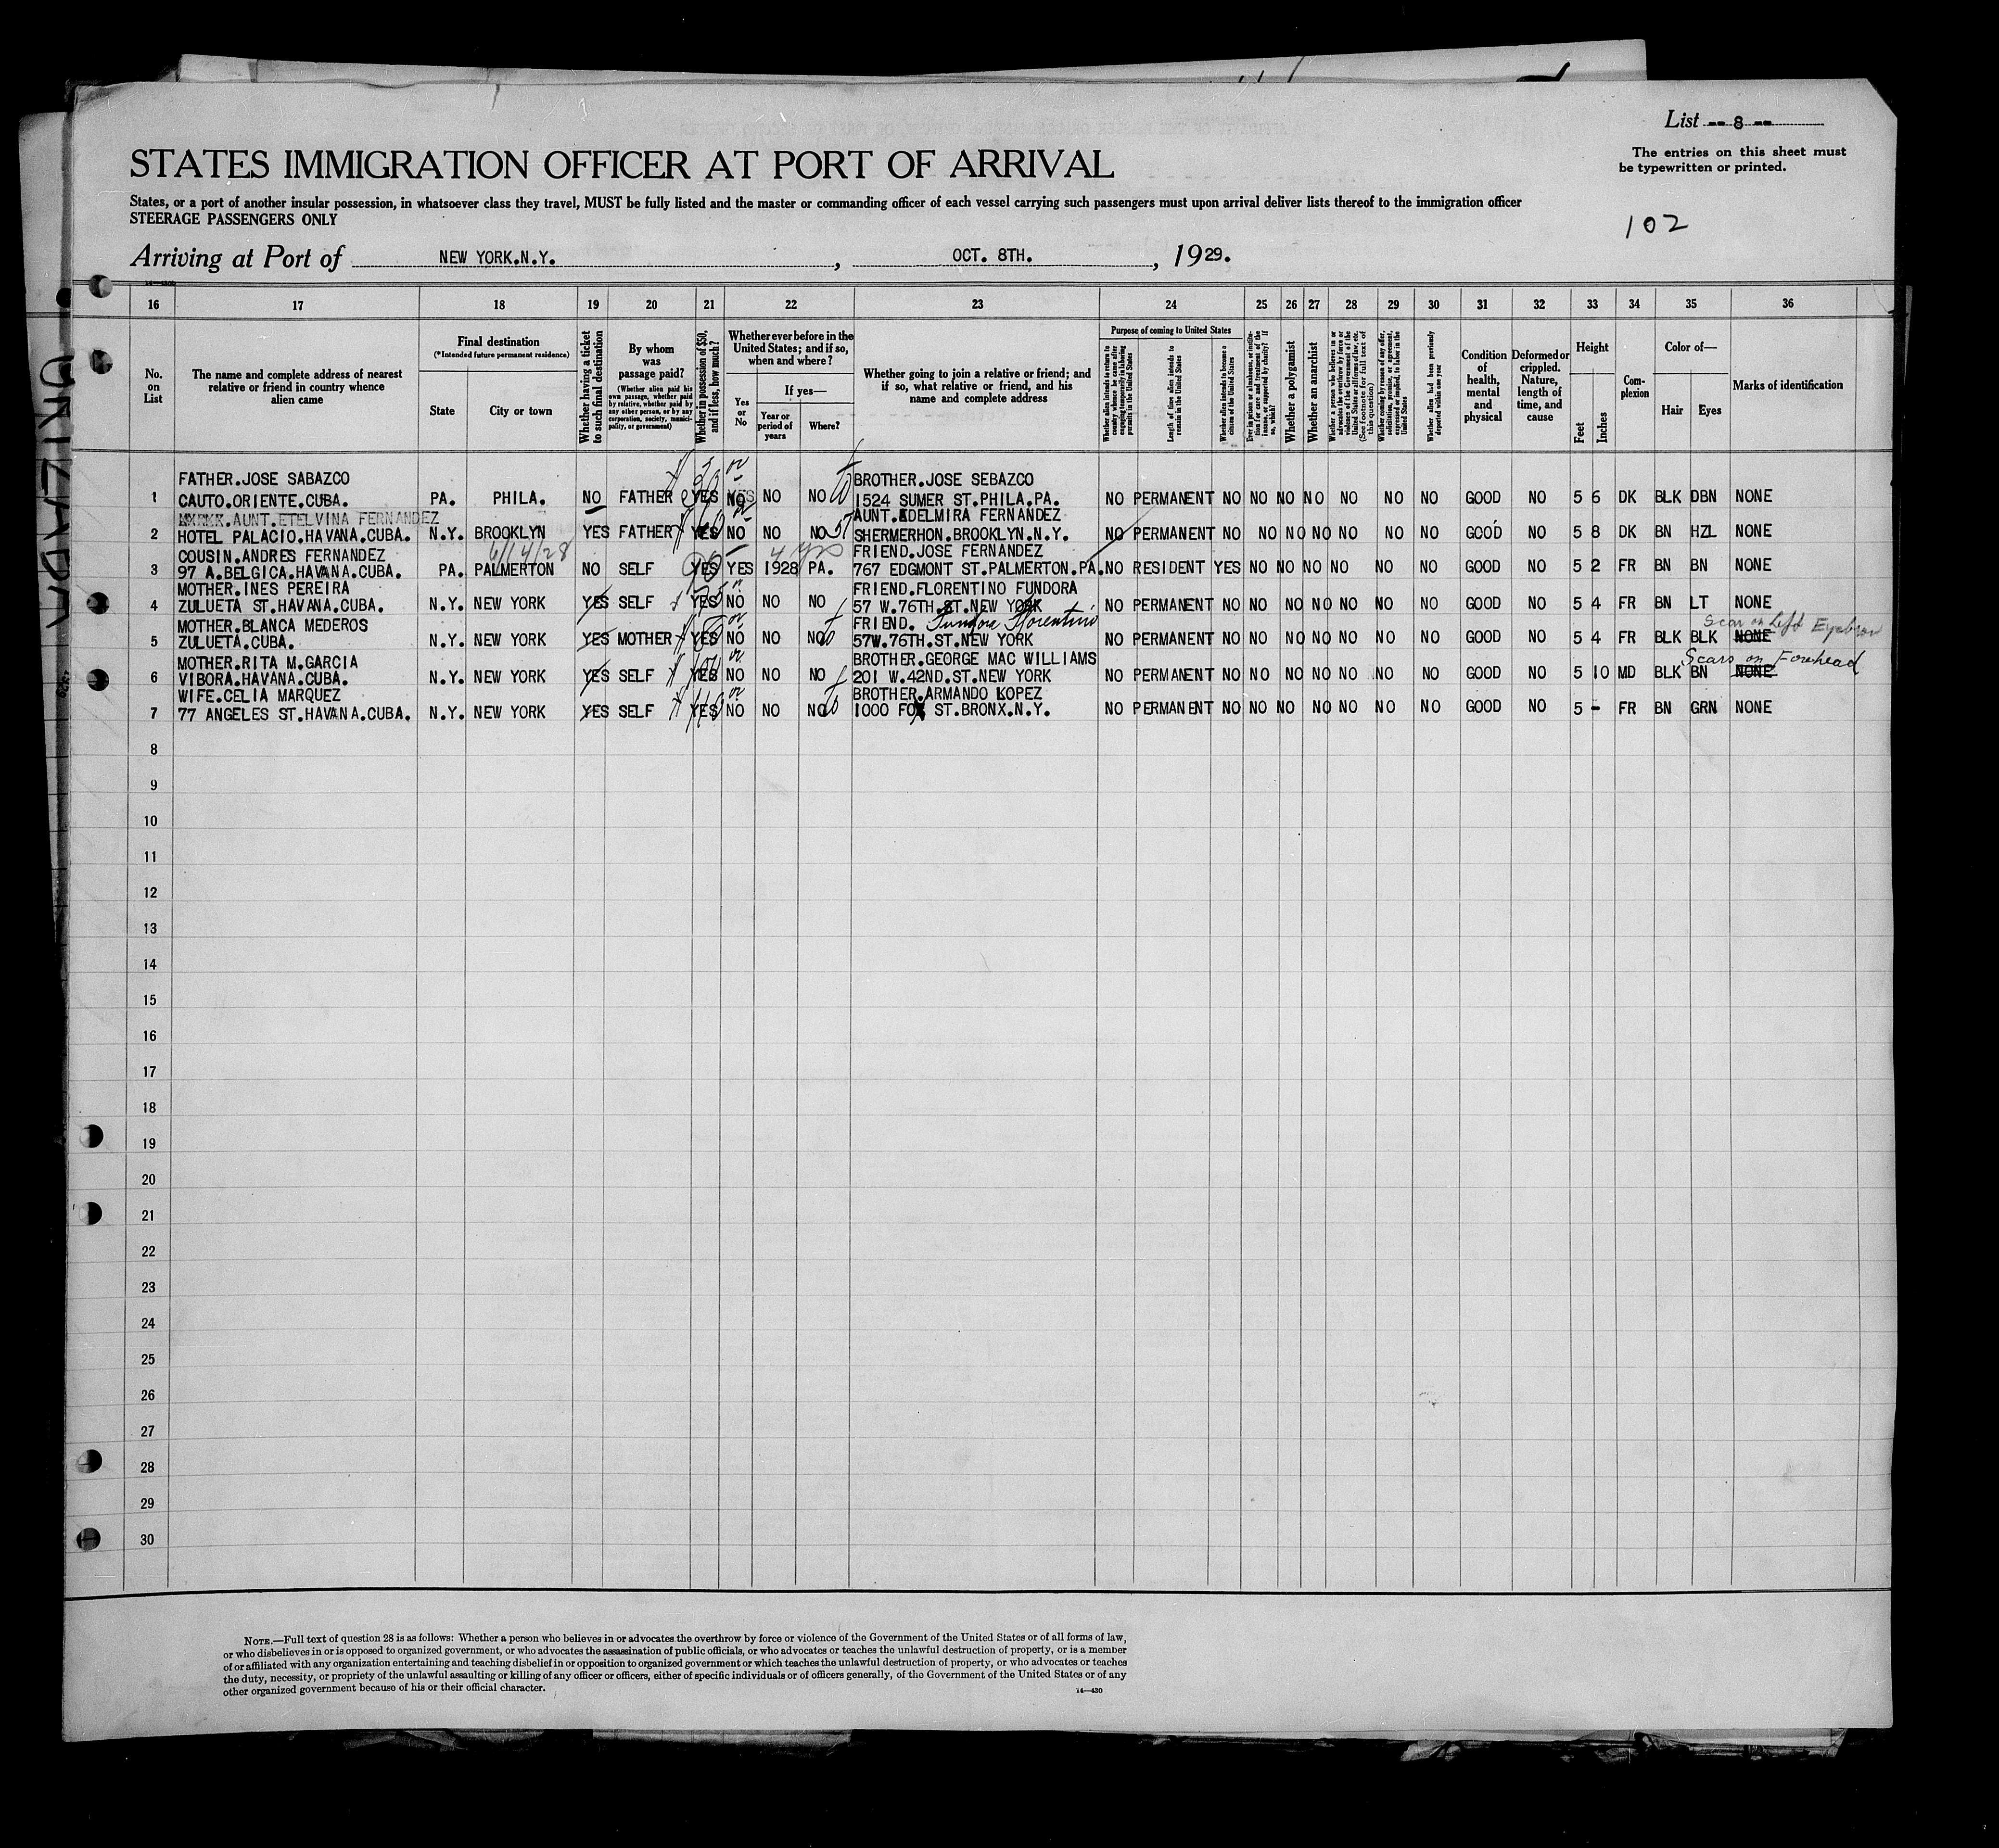 List -- 8 --
The entries on this sheet must
be typewritten or printed.
STATES IMMIGRATION OFFICER AT PORT OF ARRIVAL
States, or a port of another insular possession, in whatsoever class they travel, MUST be fully listed and the master or commanding officer of each vessel carrying such passengers must upon arrival deliver lists thereof to the immigration officer
STEERAGE PASSENGERS ONLY
102
Arriving at Port of NEW YORK.N.Y. , OCT. 8TH. , 1929.
16 17 18 19 20 21 22 23 24 25 26 27 28 29 30 31 32 33 34 35 36
No. on List
The name and complete address of nearest relative or friend in country whence alien came
Final destination
(*Intended future permanent residence)
State
City or town
Whether having a ticket to such final destination
By whom was passage paid?
(Whether alien paid his own passage, whether paid by relative, whether paid by any other person, or by any corporation, society, municipality, or government)
Whether in possession of $50, and if less, how much?
Whether ever before in the United States; and if so, when and where?
Yes or No
If yes—
Year or period of years
Where?
Whether going to join a relative or friend; and if so, what relative or friend, and his name and complete address
Purpose of coming to United States
Whether alien intends to return to country whence he came after engaging temporarily in laboring pursuits in the United States
Length of time alien intends to remain in the United States
Whether alien intends to become a citizen of the United States
Ever in prison or almshouse, or institution for care and treatment of the insane, or supported by charity? If so, which?
Whether a polygamist
Whether an anarchist
Whether a person who believes in or advocates the overthrow by force or violence of the Government of the United States or all forms of law, etc. (See footnote for full text of this question)
Whether coming by reason of any offer, solicitation, promise, or agreement, expressed or implied, to labor in the United States
Whether alien had been previously deported within one year
Condition of health, mental and physical
Deformed or crippled. Nature, length of time, and cause
Height
Feet
Inches
Complexion
Color of—
Hair
Eyes
Marks of identification
FATHER.JOSE SABAZCO BROTHER.JOSE SEBAZCO
1 CAUTO.ORIENTE.CUBA. PA. PHILA. NO FATHER YES YES NO NO 1524 SUMER ST.PHILA.PA. NO PERMANENT NO NO NO NO NO NO NO GOOD NO 5 6 DK BLK DBN NONE
AUNT.ETELVINA FERNANDEZ AUNT.EDELMIRA FERNANDEZ
2 HOTEL PALACIO.HAVANA.CUBA. N.Y. BROOKLYN YES FATHER YES NO NO NO 57 SHERMERHON.BROOKLYN.N.Y. NO PERMANENT NO NO NO NO NO NO NO GOOD NO 5 8 DK BN HZL NONE
COUSIN.ANDRES FERNANDEZ 6/14/28 4 yrs FRIEND.JOSE FERNANDEZ
3 97 A.BELGICA.HAVANA.CUBA. PA. PALMERTON NO SELF YES YES 1928 PA. 767 EDGMONT ST.PALMERTON.PA. NO RESIDENT YES NO NO NO NO NO NO GOOD NO 5 2 FR BN BN NONE
MOTHER.INES PEREIRA FRIEND.FLORENTINO FUNDORA
4 ZULUETA ST.HAVANA.CUBA. N.Y. NEW YORK YES SELF YES NO NO NO 57 W.76TH.ST.NEW YORK NO PERMANENT NO NO NO NO NO NO NO GOOD NO 5 4 FR BN LT NONE
MOTHER.BLANCA MEDEROS FRIEND. Fundora Florentino Scar on Left Eyebrow
5 ZULUETA.CUBA. N.Y. NEW YORK YES MOTHER YES NO NO NO 57W.76TH.ST.NEW YORK NO PERMANENT NO NO NO NO NO NO NO GOOD NO 5 4 FR BLK BLK NONE
MOTHER.RITA M.GARCIA BROTHER.GEORGE MAC WILLIAMS Scars on Forehead
6 VIBORA.HAVANA.CUBA. N.Y. NEW YORK YES SELF YES NO NO NO 201 W.42ND.ST.NEW YORK NO PERMANENT NO NO NO NO NO NO NO GOOD NO 5 10 MD BLK BN NONE
WIFE.CELIA MARQUEZ BROTHER.ARMANDO LOPEZ
7 77 ANGELES ST.HAVANA.CUBA. N.Y. NEW YORK YES SELF YES NO NO NO 1000 FOX ST.BRONX.N.Y. NO PERMANENT NO NO NO NO NO NO NO GOOD NO 5 - FR BN GRN NONE
8
9
10
11
12
13
14
15
16
17
18
19
20
21
22
23
24
25
26
27
28
29
30
NOTE.—Full text of question 28 is as follows: Whether a person who believes in or advocates the overthrow by force or violence of the Government of the United States or of all forms of law,
or who disbelieves in or is opposed to organized government, or who advocates the assassination of public officials, or who advocates or teaches the unlawful destruction of property, or is a member
of or affiliated with any organization entertaining and teaching disbelief in or opposition to organized government or which teaches the unlawful destruction of property, or who advocates or teaches
the duty, necessity, or propriety of the unlawful assaulting or killing of any officer or officers, either of specific individuals or of officers generally, of the Government of the United States or of any
other organized government because of his or their official character.
14—430